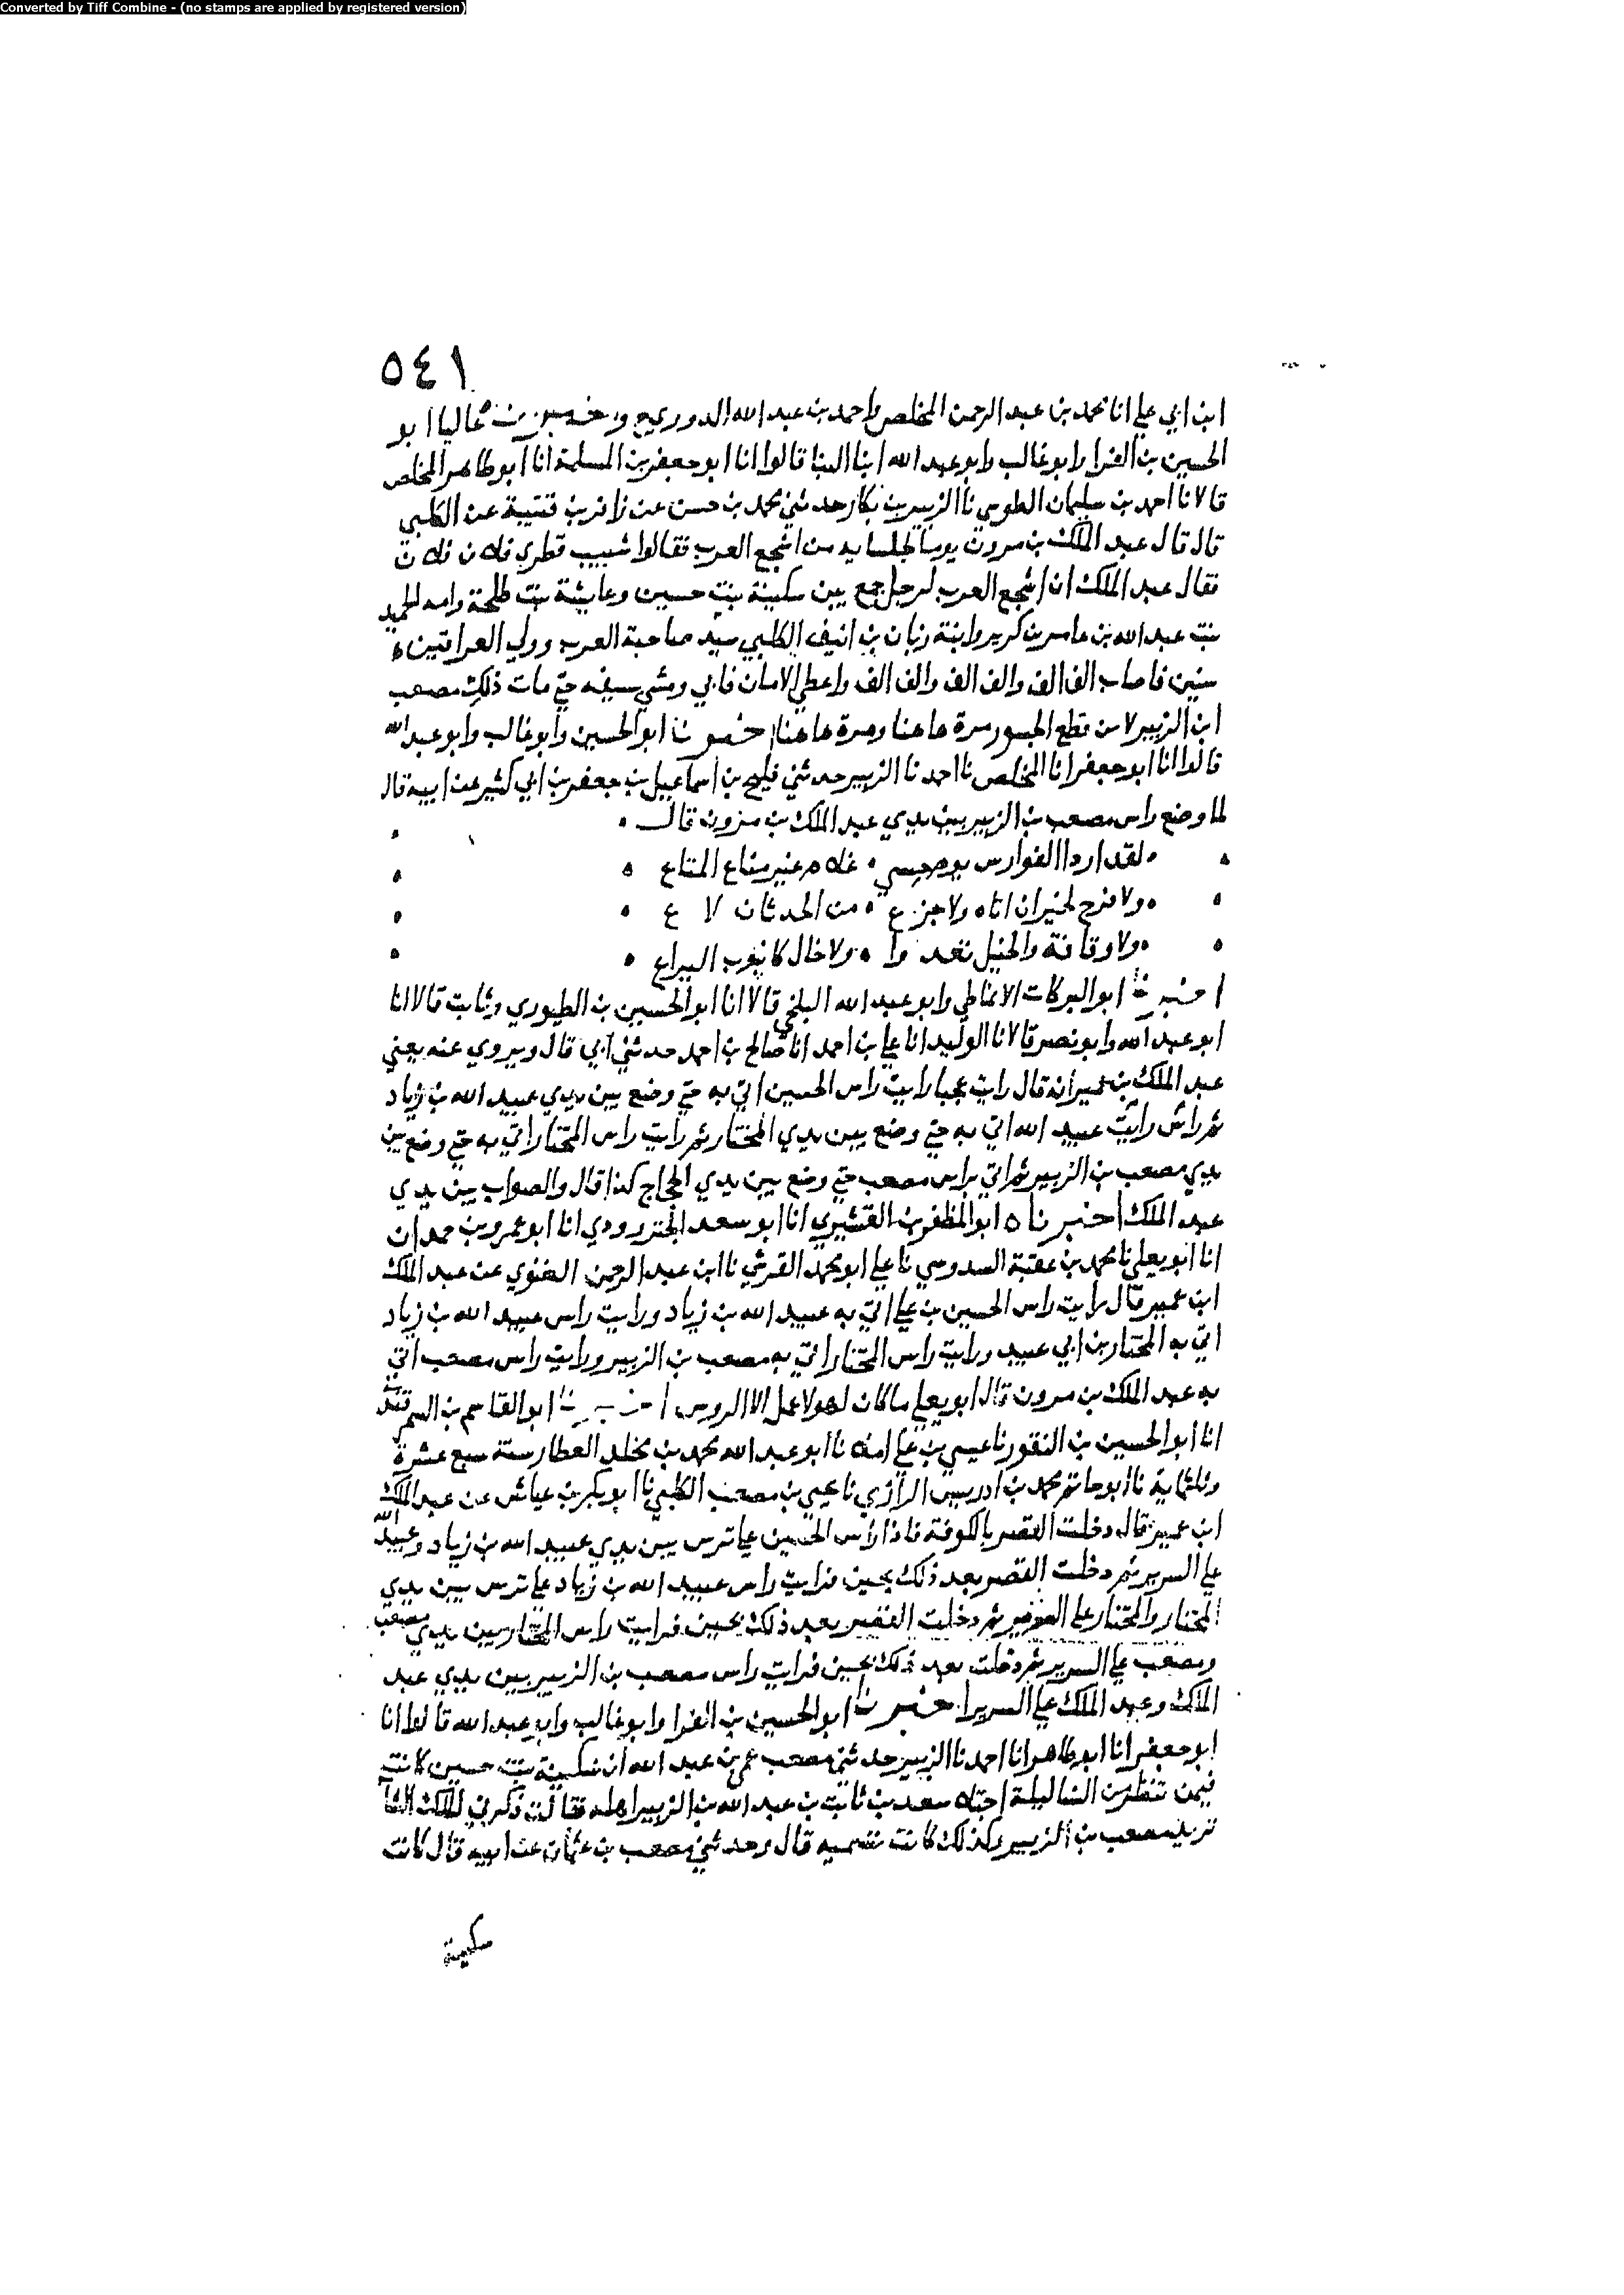 Converted by Tiff Combine - (no stamps are applied by registered version)
٥٤١
ابن ابي علي انا محمد بن عبد الرحمن المخلص واحمد بن عبد الله الدوري ح واخبرنا عاليا ابو
الحسين بن الفرا وابو غالب وابو عبد الله ابنا البنا قالوا انا ابو جعفر بن المسلمة انا ابو طاهر المخلص
قالا نا احمد بن سليمان الطوسي نا الزبير بن بكار حدثني محمد بن حسن عن زافر بن قتيبة عن الكلبي
قال قال عبد الملك بن مروان يوما لجلسايه من اشجع العرب فقالوا شبيب قطري فلان فلان
فقال عبد الملك ان اشجع العرب لرجل جمع بين سكينة بنت حسين وعايشة بنت طلحة وامه الحميد
بنت عبد الله بن عامر بن كريز وابنة زبان بن انيف الكلبي سيد صاحبة العرب وولي العراقين
سنين فاصاب الف الف والف الف والف الف واعطي الامان فابي ومشي بسيفه حتي مات ذلك مصعب
ابن الزبير لا من قطع الجسور مرة هاهنا ومرة هاهنا اخبرنا ابو الحسين وابو غالب وابو عبد الله
قالوا انا ابو جعفر انا المخلص نا احمد نا الزبير حدثني فليح بن اسماعيل بن جعفر بن ابي كثير عن ابيه قال
لما وضع راس مصعب بن الزبير بين يدي عبد الملك بن مرون قال
لقد اردا الفوارس يوم عبس غلام غير مناع المتاع
ولا فرح لخير ان اتاه ولا جزع من الحدثان لا ع
ولا وقافة والخيل تعدوا ولا خال كانبوب اليراع
اخبرنا ابو البركات الانماطي وابو عبد الله البلخي قالا انا ابو الحسين بن الطيوري وثابت قالا انا
ابو عبد الله وابو نصر قالا نا الوليد انا علي بن احمد انا صالح بن احمد حدثني ابي قال ويروي عنه يعني
عبد الملك بن عمير انه قال رايت عجبا رايت راس الحسين اتي به حتي وضع بين يدي عبيد الله بن زياد
ثم راس رايت عبيد الله اتي به حتي وضع بين يدي المختار ثم رايت راس المختار اتي به حتي وضع بين
يدي مصعب بن الزبير ثم اتي براس مصعب حتي وضع بين يدي الحجاج كذا قال والصواب بين يدي
عبد الملك اخبرناه ابو المظفر بن القشيري انا ابو سعد الجنزرودي انا ابو عمرو بن حمدان
انا ابو يعلي نا محمد بن عقبة السدوسي نا علي ابو محمد القرشي نا ابن عبد الرحمن الغنوي عن عبد الملك
ابن عمير قال رايت راس الحسين بن علي اتي به عبيد الله بن زياد ورايت راس عبيد الله بن زياد
اتي به المختار بن ابي عبيد ورايت راس المختار اتي به مصعب بن الزبير ورايت راس مصعب اتي
به عبد الملك بن مرون قال ابو يعلي ما كان لهولا عمل الا الروس اخبرنا ابو القاسم بن السمرقندي
انا ابو الحسين بن النقور نا عيسي بن علي املا نا ابو عبد الله محمد بن مخلد العطار سنة سبع عشرة
وثلثماية نا ابو حاتم محمد بن ادريس الرازي نا يحيي بن مصعب الكلبي نا ابو بكر بن عياش عن عبد الملك
ابن عمير قال دخلت القصر بالكوفة فاذا راس الحسين علي ترس بين يدي عبيد الله بن زياد وعبيد الله
علي السرير ثم دخلت القصر بعد ذلك بحين فرايت راس عبيد الله بن زياد علي ترس بين يدي
المختار والمختار علي السرير ثم دخلت القصر بعد ذلك بحين فرايت راس المختار بين يدي مصعب
ومصعب علي السرير ثم دخلت بعد ذلك بحين فرايت راس مصعب بن الزبير بين يدي عبد
الملك وعبد الملك علي السرير اخبرنا ابو الحسين بن الفرا وابو غالب وابو عبد الله قالوا انا
ابو جعفر انا ابو طاهر انا احمد نا الزبير حدثني مصعب عمي بن عبد الله ان سكينة بنت حسين كانت
فيمن تنظر من النسا ليلة اجتلا سعد بن ثابت بن عبد الله بن الزبير اهله فقالت ذكرني الملك الشاب
تريد مصعب بن الزبير وكذلك كانت تسميه قال وحدثني مصعب بن عثمان عن ابيه قال كانت
سكينة